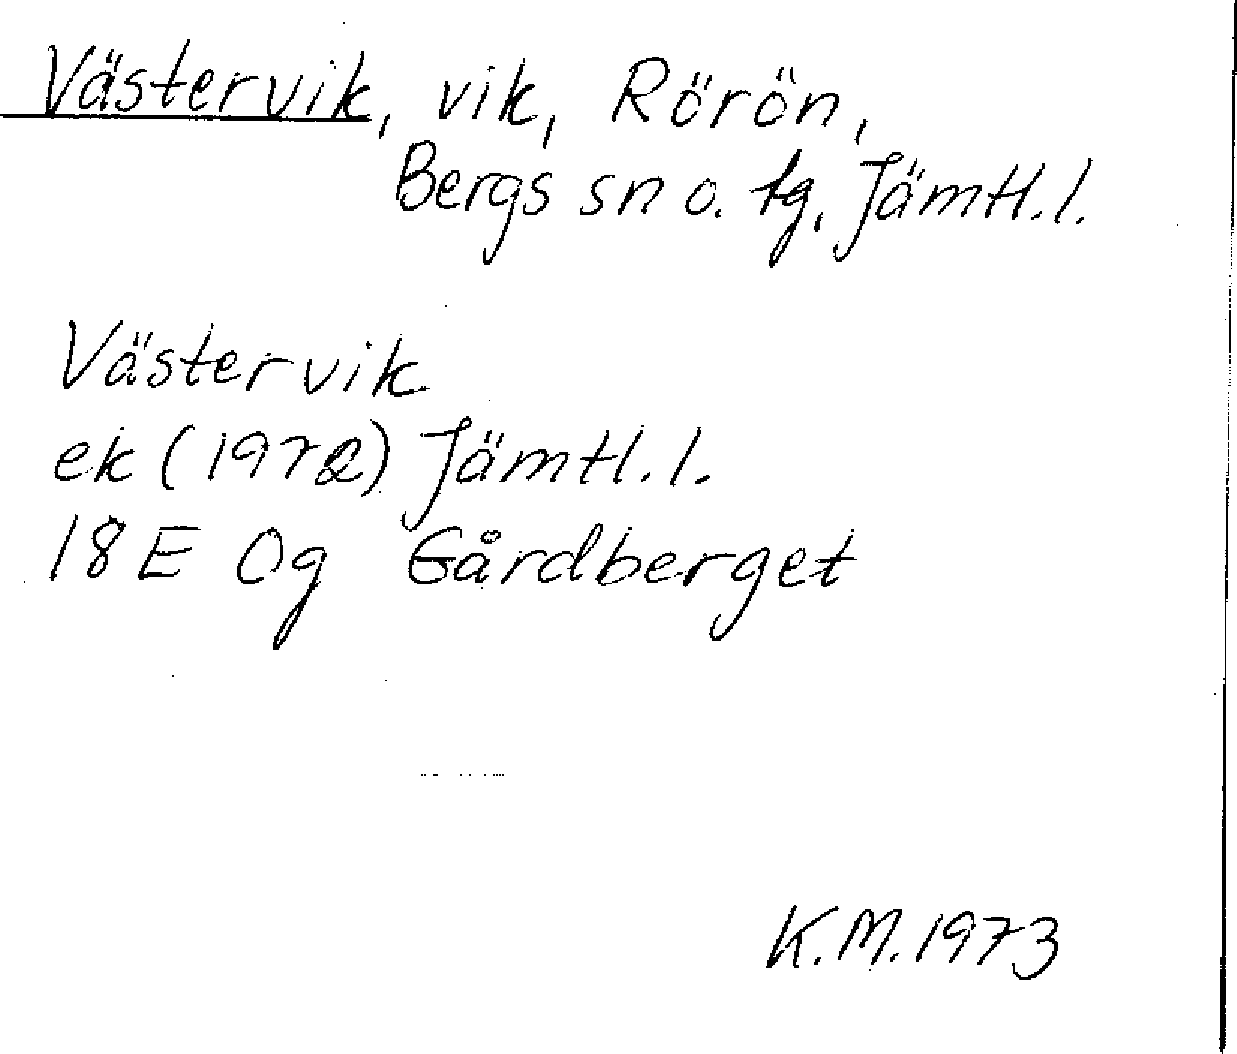 Västervik, vik, Rörön,
Bergs sn o. tg, Jämtl.l.
Västervik
ek (1972) Jämtl.l.
18E 0g Gårdberget
K.M.1973